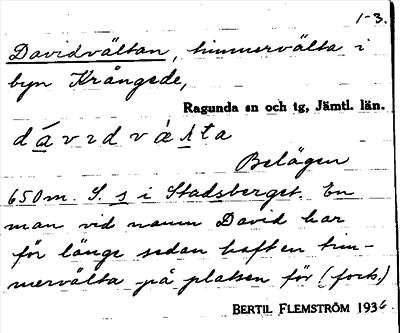 1-3.
Davidvältan, timmervälta i
byn Krångede,
Ragunda sn och tg, Jämtl. län.
dávıdvältа
Belägen
650 m. S. s i Stadsberget. En
man vid namn David har
för länge sedan haft en tim-
mervälta på platsen för (forts)
BERTIL FLEMSTRÖM 1936